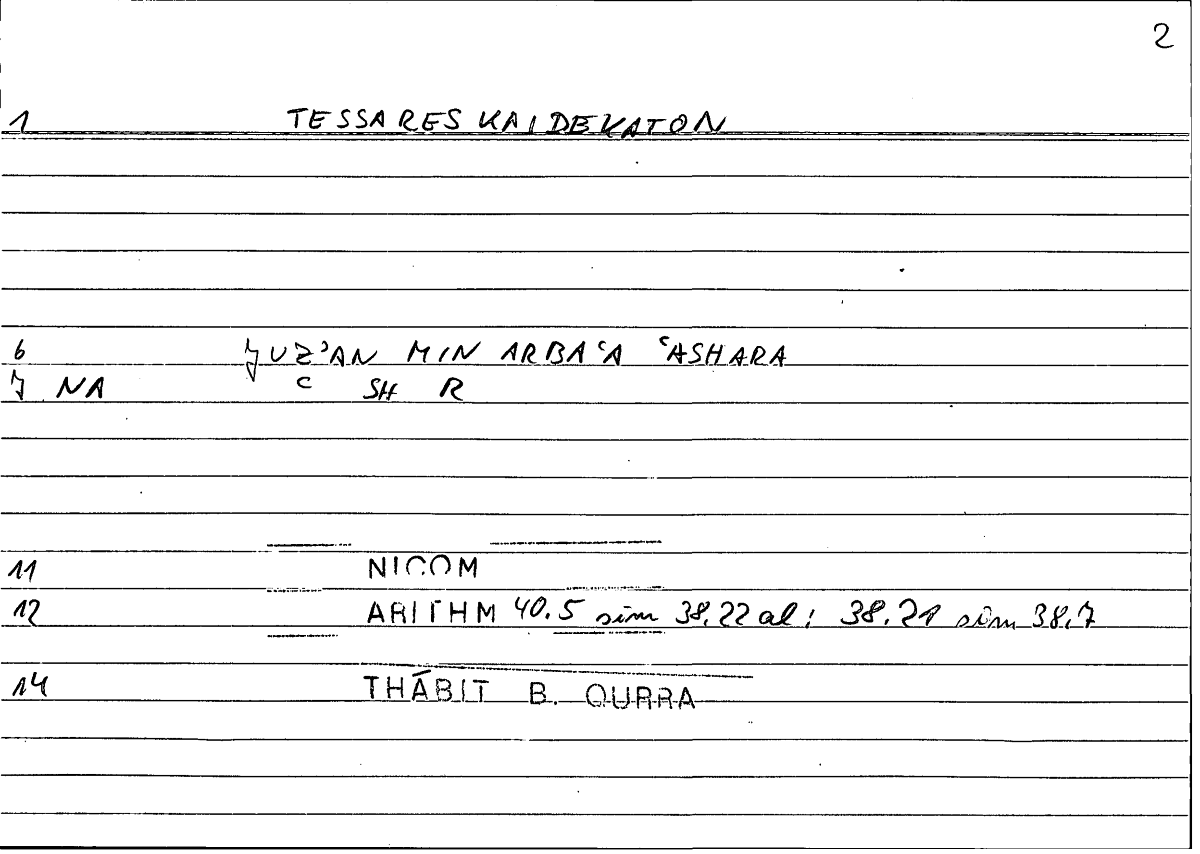 2
1 TESSARES KAIDEKATON
6 JUZʾAN MIN ARBAʿA ʿASHARA
J NA C SH R
11 NICOM
12 ARITHM 40.5 sim 38.22 al; 38.21 sim 38.7
14 THĀBIT B. QURRA